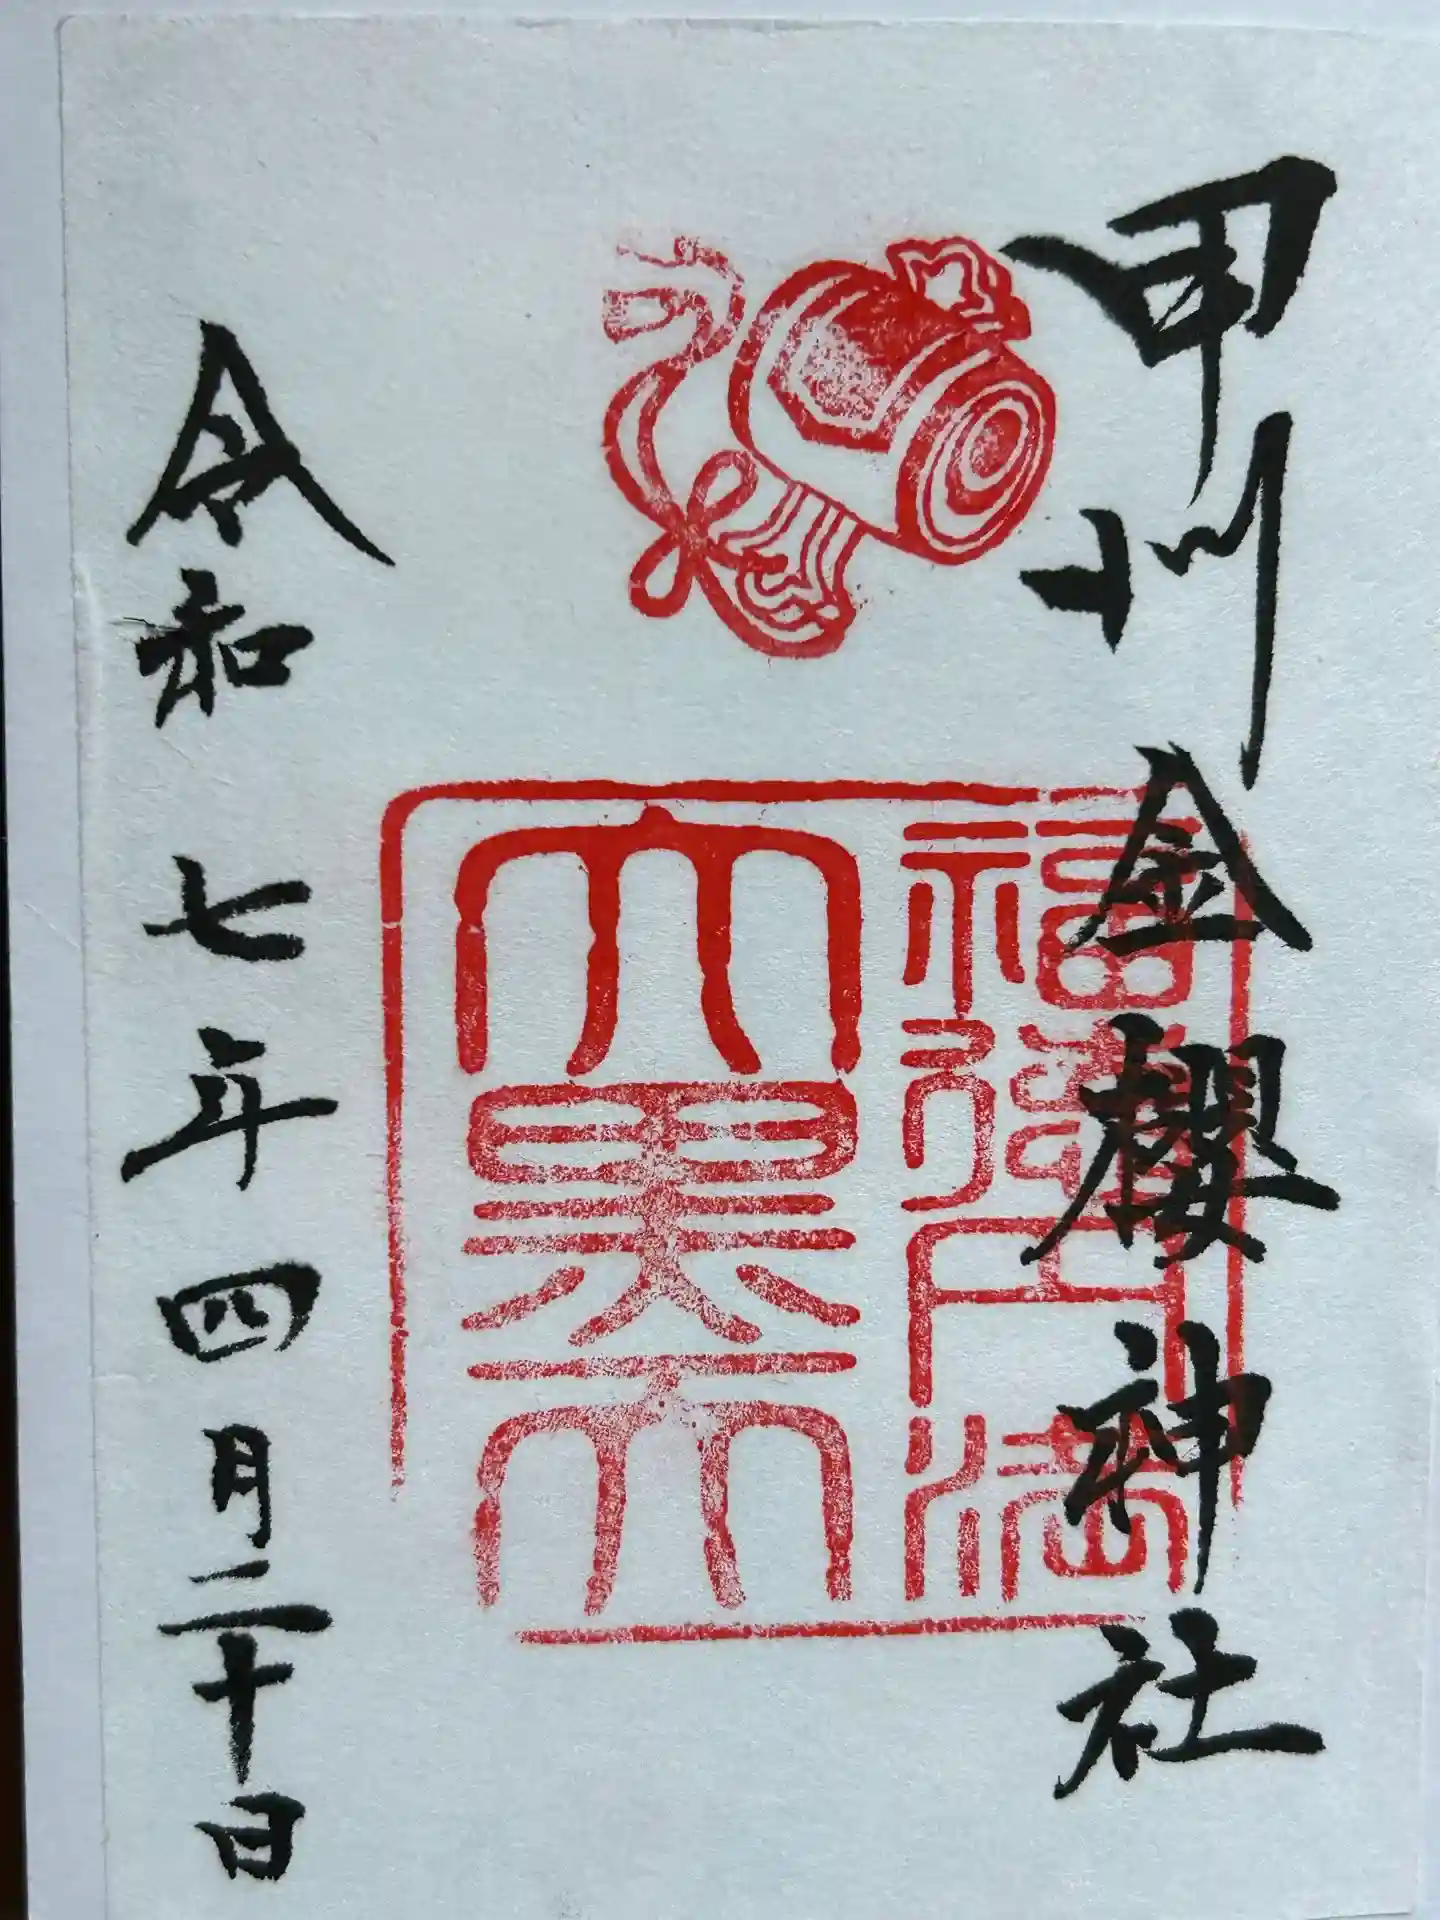 甲州金櫻神社
福徳円満
大黒天
令和七年四月二十日